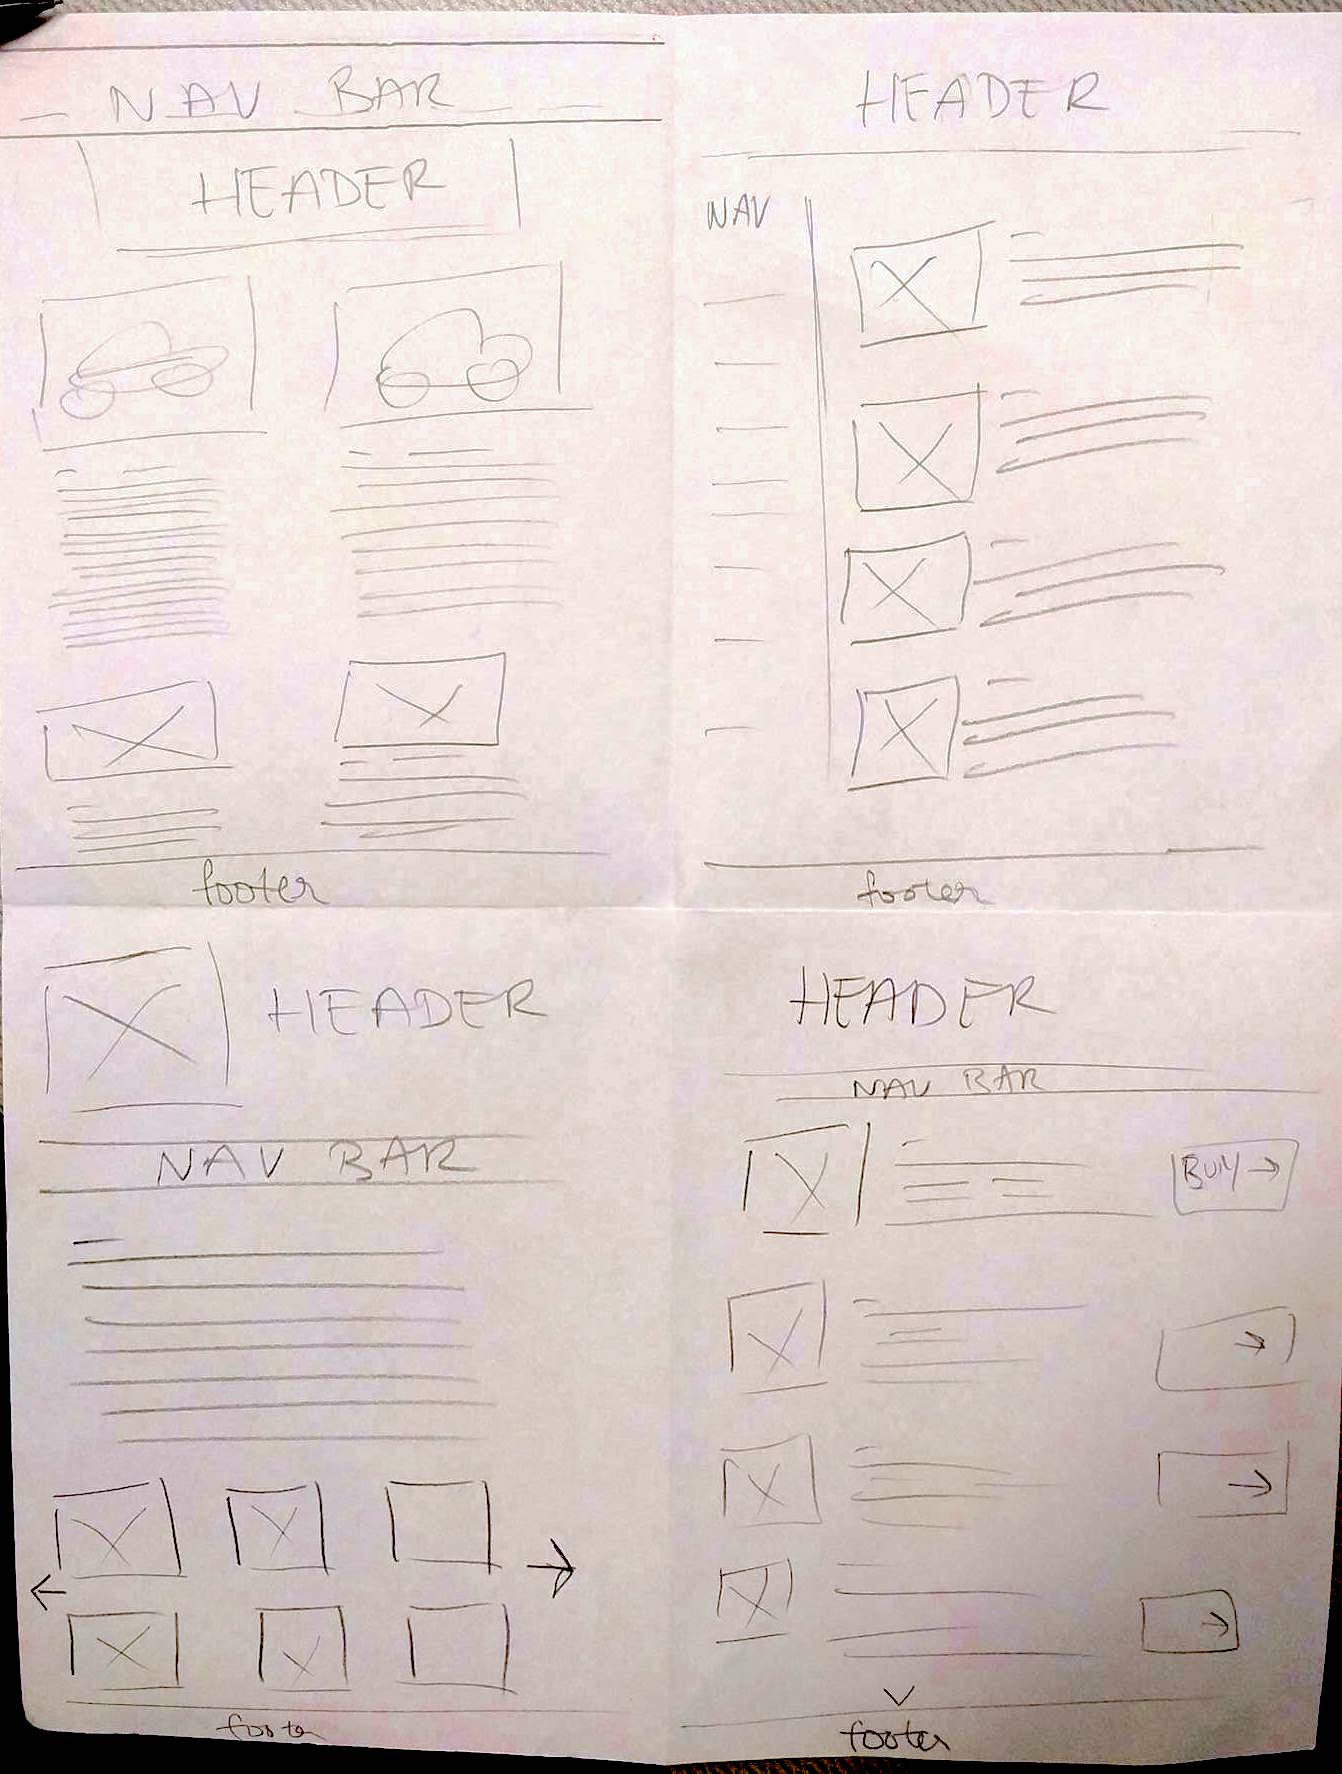 NAV BAR
HEADER
footer
HEADER
NAV
footer
HEADER
NAV BAR
footer
HEADER
NAV BAR
BUY →
footer